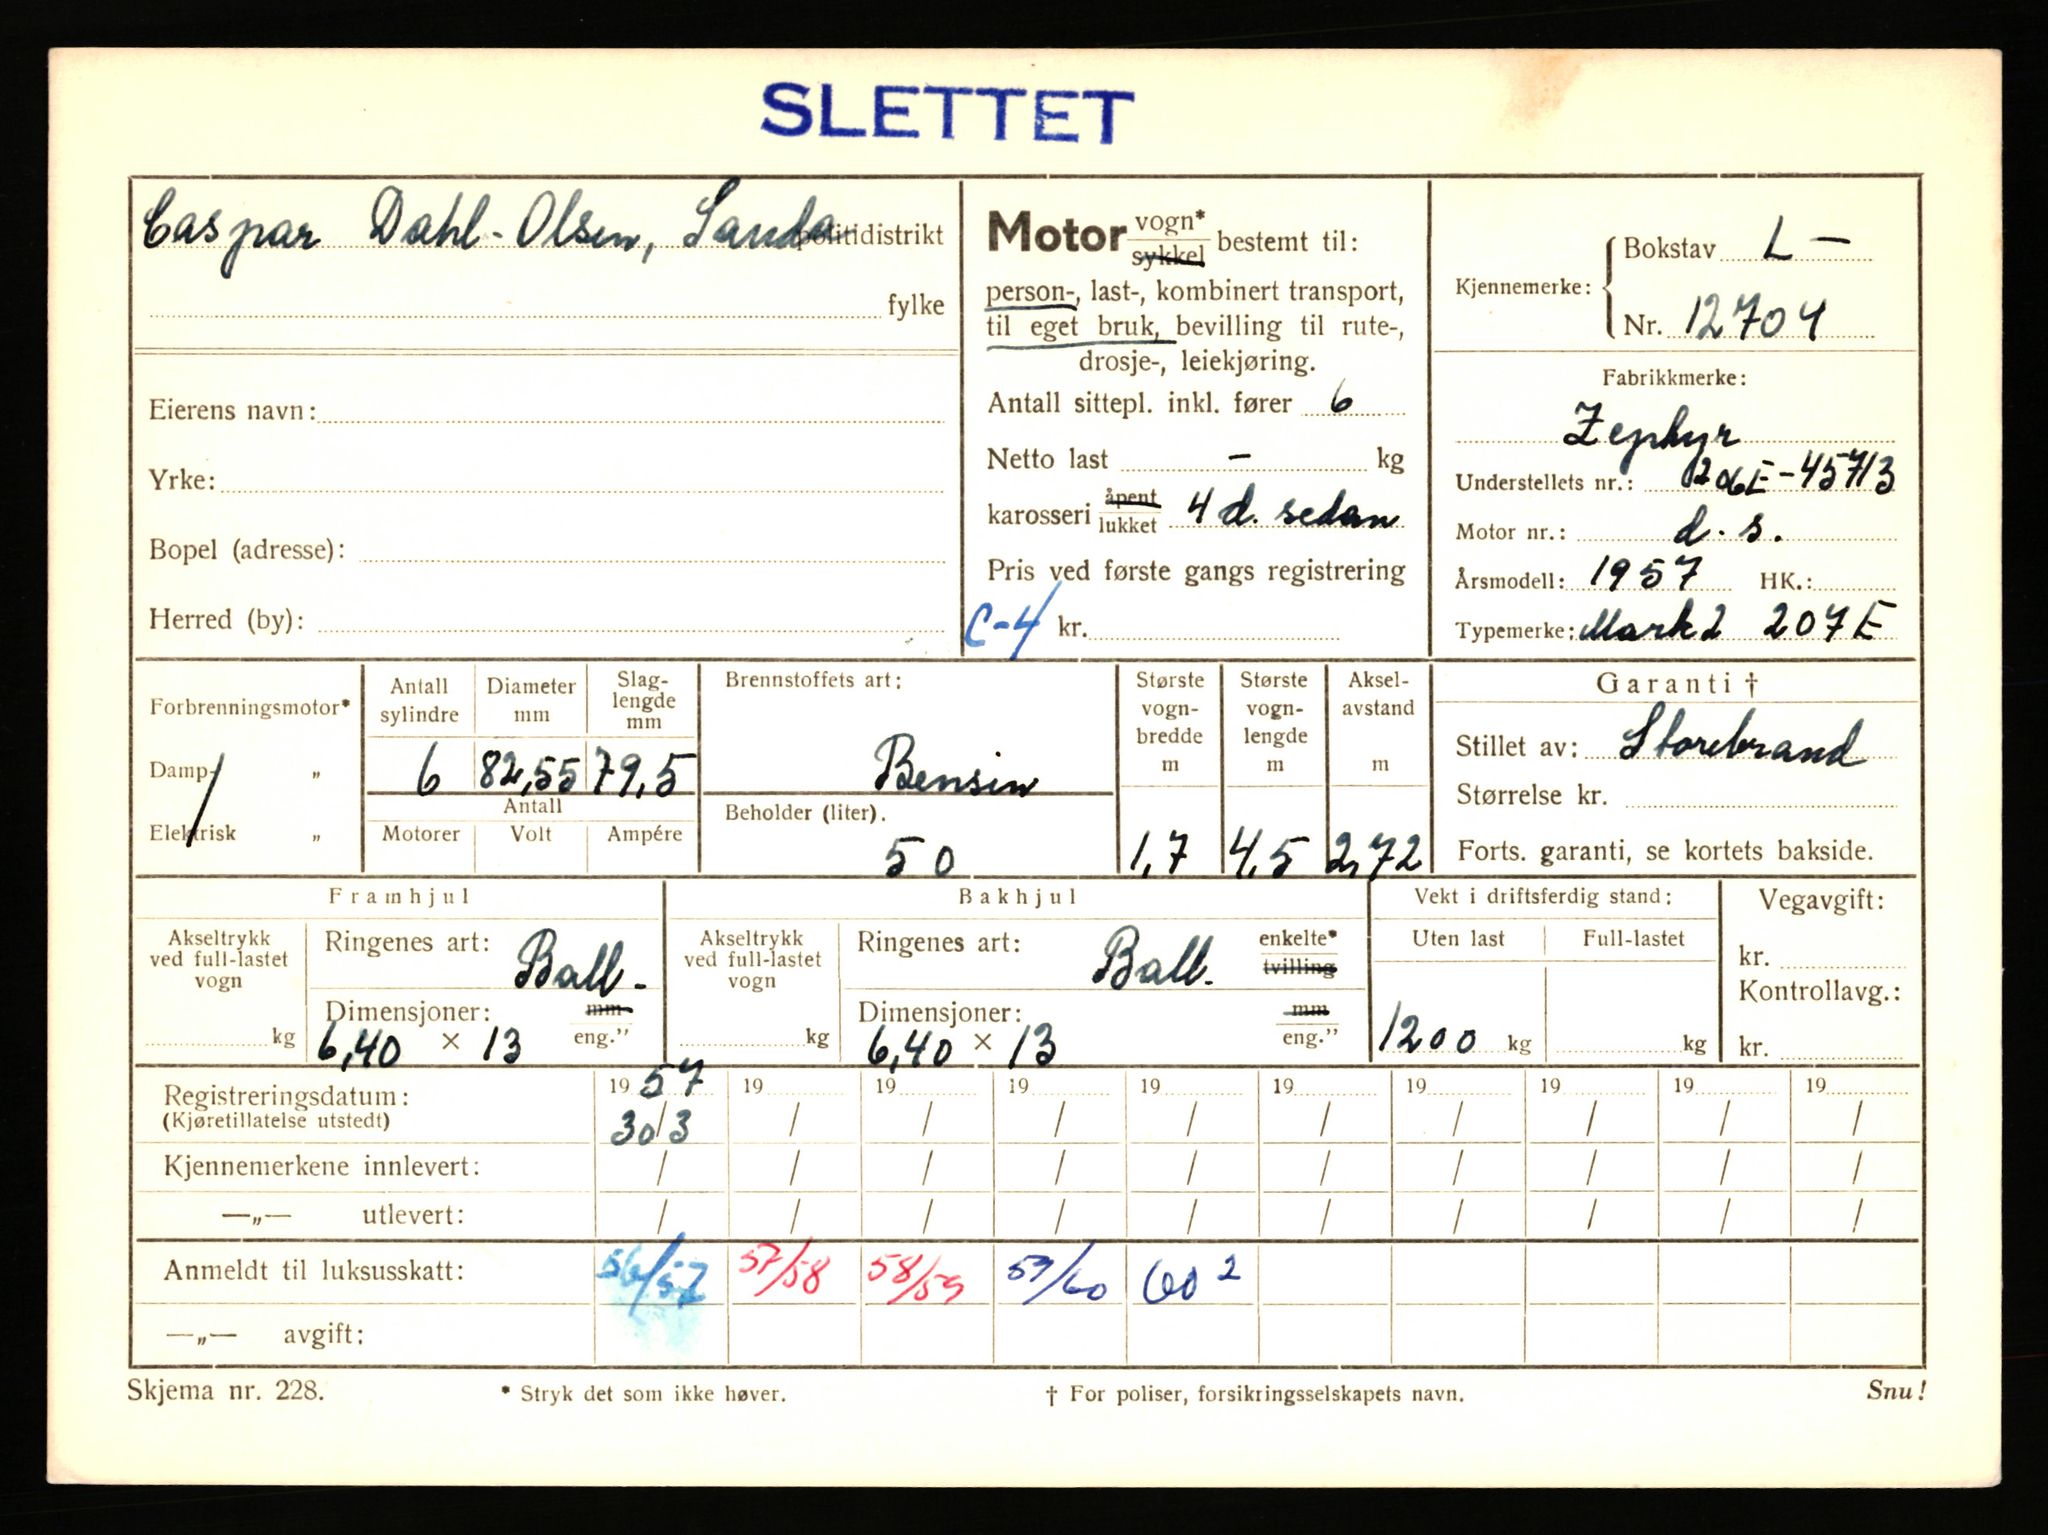 SLETTET
Caspar Dahl-Olsen, Sanda politidistrikt
fylke
Eierens navn:
Yrke:
Bopel (adresse):
Herred (by):
Motor vogn* sykkel bestemt til:
person-, last-, kombinert transport,
til eget bruk, bevilling til rute-,
drosje-, leiekjøring.
Antall sittepl. inkl. fører 6
Netto last - kg
karosseri åpent lukket 4 d. sedan
Pris ved første gangs registrering
C-4 kr.
Kjennemerke: Bokstav L -
Nr. 12704
Fabrikkmerke:
Zephyr
Understellets nr.: 206E-45713
Motor nr.: d.s.
Årsmodell: 1957 HK.:
Typemerke: Mark 2 207E
Forbrenningsmotor*
Damp- „
Elektrisk „
Antall sylindre
6
Diameter mm
82,55
Slag-lengde mm
79,5
Antall
Motorer Volt Ampére
Brennstoffets art:
Bensin
Beholder (liter).
50
Største vogn-bredde m
1,7
Største vogn-lengde m
4,5
Aksel-avstand m
2,72
Garanti †
Stillet av: Storebrand
Størrelse kr.
Forts. garanti, se kortets bakside.
Framhjul
Akseltrykk ved full-lastet vogn
kg
Ringenes art: Ball-
Dimensjoner: mm
6,40 × 13 eng.”
Bakhjul
Akseltrykk ved full-lastet vogn
kg
Ringenes art: Ball. enkelte* tvilling
Dimensjoner: mm
6,40 × 13 eng.”
Vekt i driftsferdig stand:
Uten last Full-lastet
1200 kg kg
Vegavgift:
kr.
Kontrollavg.:
kr.
Registreringsdatum: 19 57 19 19 19 19 19 19 19 19 19
(Kjøretillatelse utstedt) 30/3 / / / / / / / / /
Kjennemerkene innlevert: / / / / / / / / / /
—„— utlevert: / / / / / / / / / /
Anmeldt til luksusskatt: 56/57 57/58 58/59 59/60 60 2
—„— avgift:
Skjema nr. 228. * Stryk det som ikke høver. † For poliser, forsikringsselskapets navn. Snu!